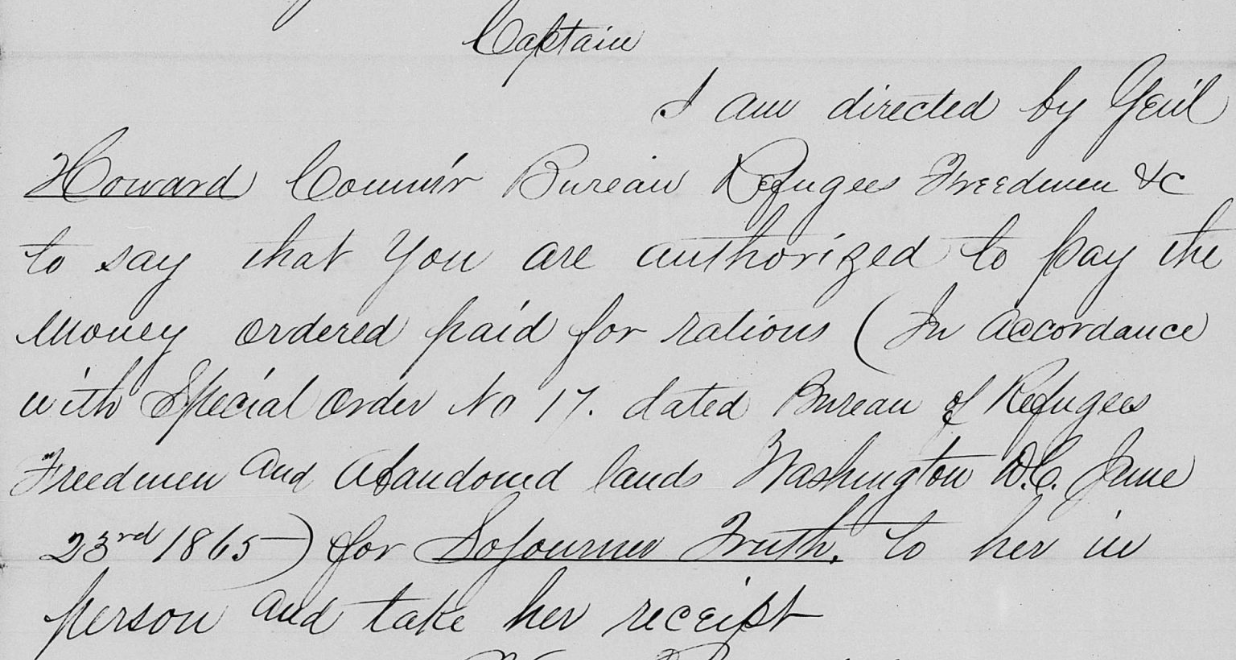 Captain
I am directed by Genl
Howard Commr Bureau Refugees Freedmen &c
to say that you are authorized to pay the
money ordered paid for rations (In accordance
with Special Order No 17. dated Bureau of Refugees
Freedmen and Abandoned lands Washington D.C. June
23rd 1865) for Sojourner Truth. to her in
person and take her receipt